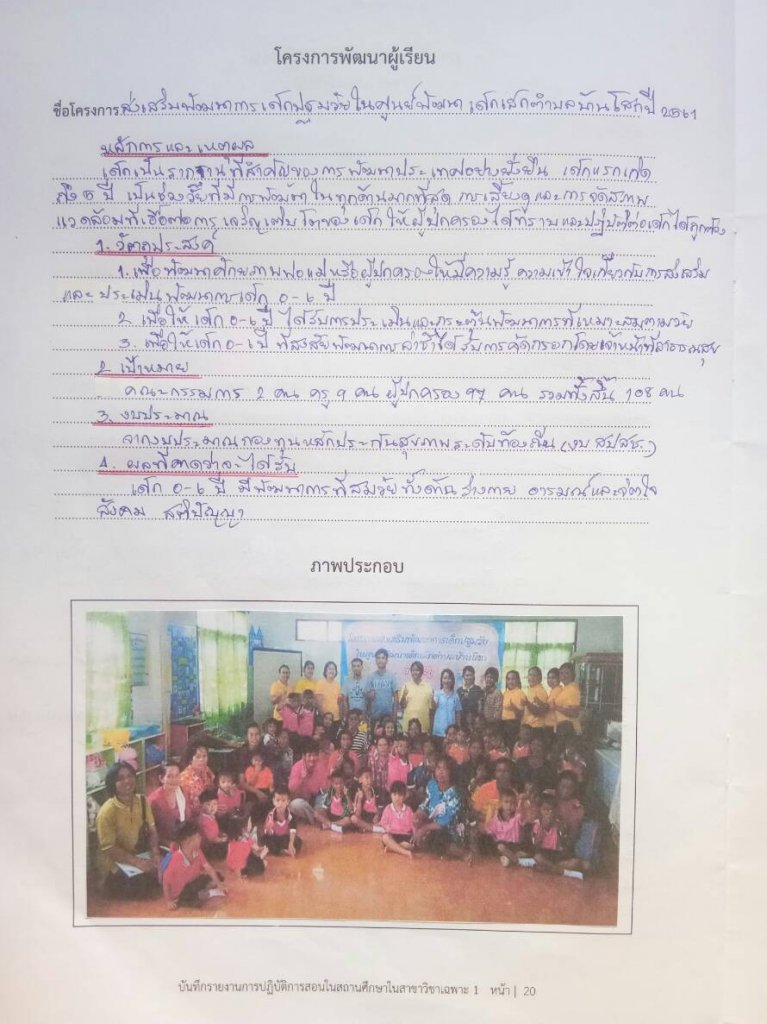 โครงการพัฒนาผู้เรียน
ชื่อโครงการ ส่งเสริมพัฒนาการเด็กปฐมวัยในศูนย์พัฒนาเด็กเล็กตำบลบ้านโสกปี 2561
หลักการและเหตุผล
เด็กเป็นรากฐานที่สำคัญของการพัฒนาประเทศอย่างยั่งยืน เด็กแรกเกิด
ถึง 5 ปี เป็นช่วงวัยที่มีการพัฒนาในทุกด้านมากที่สุด การเลี้ยงดูและการจัดสภาพ
แวดล้อมที่เอื้อต่อการเจริญเติบโตของเด็ก ให้ผู้ปกครองได้ทราบและปฏิบัติต่อเด็กได้ถูกต้อง
1. วัตถุประสงค์
1. เพื่อพัฒนาศักยภาพพ่อแม่หรือผู้ปกครองให้มีความรู้ ความเข้าใจเกี่ยวกับการส่งเสริม
และประเมินพัฒนาการเด็ก 0-6 ปี
2. เพื่อให้เด็ก 0-6 ปี ได้รับการประเมินและกระตุ้นพัฒนาการที่เหมาะสมตามวัย
3. เพื่อให้เด็ก 0-6 ปี ที่สงสัยพัฒนาการล่าช้าได้รับการคัดกรองโดยเจ้าหน้าที่สาธารณสุข
2. เป้าหมาย
คณะกรรมการ 2 คน ครู 9 คน ผู้ปกครอง 97 คน รวมทั้งสิ้น 108 คน
3. งบประมาณ
จากงบประมาณกองทุนหลักประกันสุขภาพระดับท้องถิ่น (งบ สปสช.)
4. ผลที่คาดว่าจะได้รับ
เด็ก 0-6 ปี มีพัฒนาการที่สมวัยทั้งด้านร่างกาย อารมณ์และจิตใจ
สังคม สติปัญญา
ภาพประกอบ
โครงการส่งเสริมพัฒนาการเด็กปฐมวัย
ในศูนย์พัฒนาเด็กเล็กตำบลบ้านโสก
บันทึกรายงานการปฏิบัติการสอนในสถานศึกษาในสาขาวิชาเฉพาะ 1 หน้า | 20